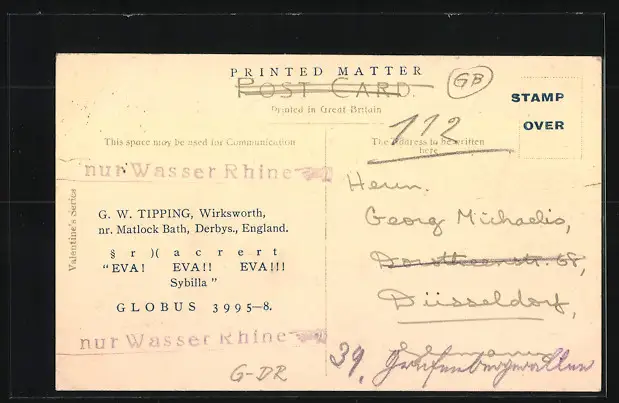 PRINTED MATTER
POST CARD.
Printed in Great Britain
GB
STAMP
OVER
112
This space may be used for Communication
The Address to be written
here
nur Wasser Rhine
Valentine's Series
G. W. TIPPING, Wirksworth,
nr. Matlock Bath, Derbys., England.
§ r )( a c r e r t
"EVA! EVA!! EVA!!!
Sybilla"
GLOBUS 3995–8.
nur Wasser Rhine
G-DR
Herrn.
Georg Michaelis,
Düsseldorf,
39,